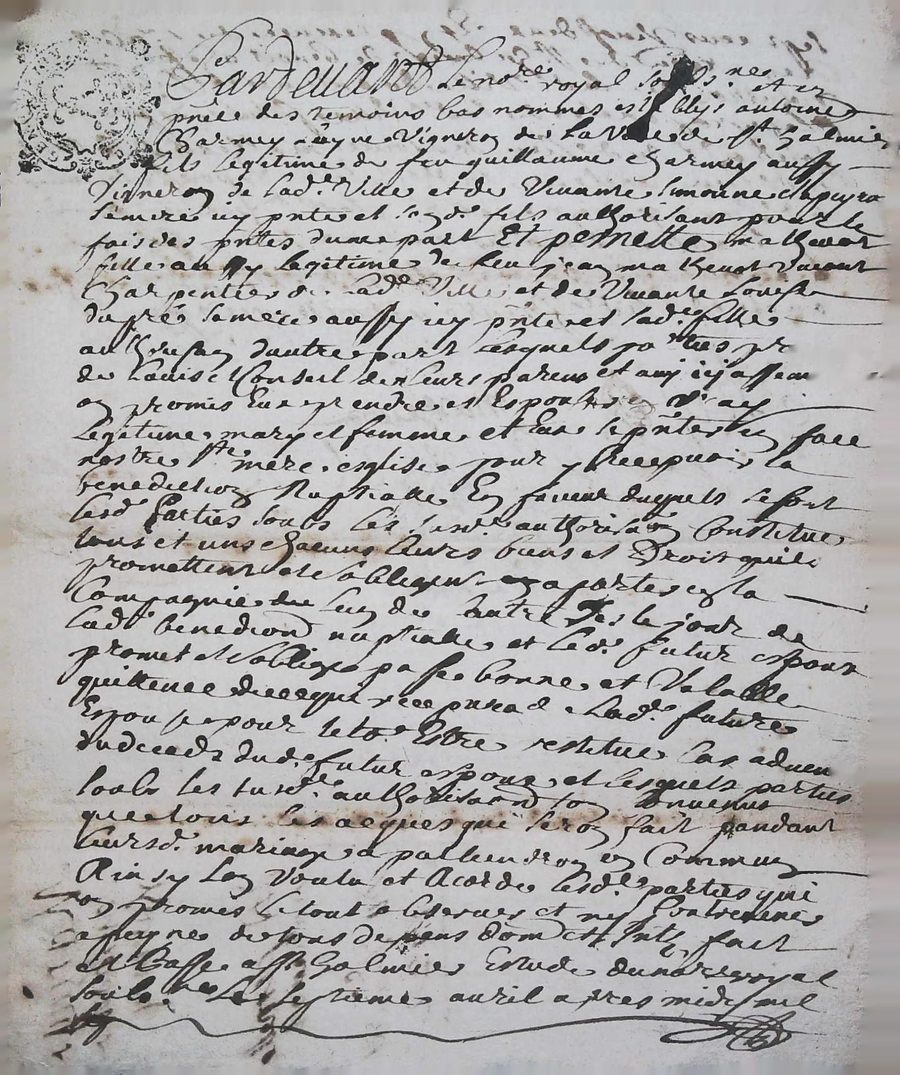 Pardevant le no.re royal soubs.nes et en
pñce des temoins bas nommes est estably antoine
Charmey jeune vigneron de la Ville de St. Galmier
fils legitime de feu guillaume charmey aussy
vigneron de lad. Ville et de vivante simonne clapeyro
sa mere icy pñte et son d. fils authorisant pour le
fait des pñtes dune part Et pernette mathevot
fille aussy legitime de feu jean mathevot vivant
Charpentier de lad. Ville et de vivante Louise
dupré sa mere aussy icy pñte et lad. fille
authorisan dautre part lesquels parties pr
de lavis et Conseil de leurs parens et amy icy assem
on promis Eux prendre et Espouser en vray
Legitime mary et femme et Eux se pñter en face
nostre ste mere esglise pour y recepvoir la
benediction Nuptialle En faveur duquel se sont
lesd. Parties soubs les susd. authorisa.on Constitue
tous et uns chacuns leurs biens et Droit quils
promettent et sobligent aporter en la
Compagnie de lun de lautre Des le jour de
lad. benedion nuptialle et led. futur espoux
promet et soblige passer bonne et Valable
quittence de ce qui recepvra de lad. future
Espouse pour le to. Estre restitue Cas advena
du deceds dud. futur espoux et lesquels parties
soubs les susd. authorisa.on son Convenus
que tous les acques qui seron fait pandant
leursd. mariage apartiendron en Commun
Ainsy lon Voulu et Acorde lesd. parties qui
on promis le tout observer et ny Contrevenir
a peyne de tous depens dom et Int. fait
et Passe a St Galmier Estude du no.re royal
soub.nes le septieme avril apres midi mil